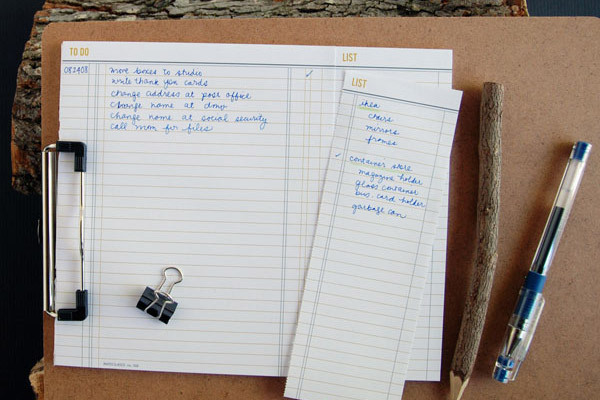 TO DO
LIST
082408 move boxes to studio ✓
write thank you cards
change address at post office
change name at dmv
change name at social security
call mom for files
LIST
ikea
chairs
mirrors
frames
✓ container store
magazine holder
glass container
bus. card holder
garbage can